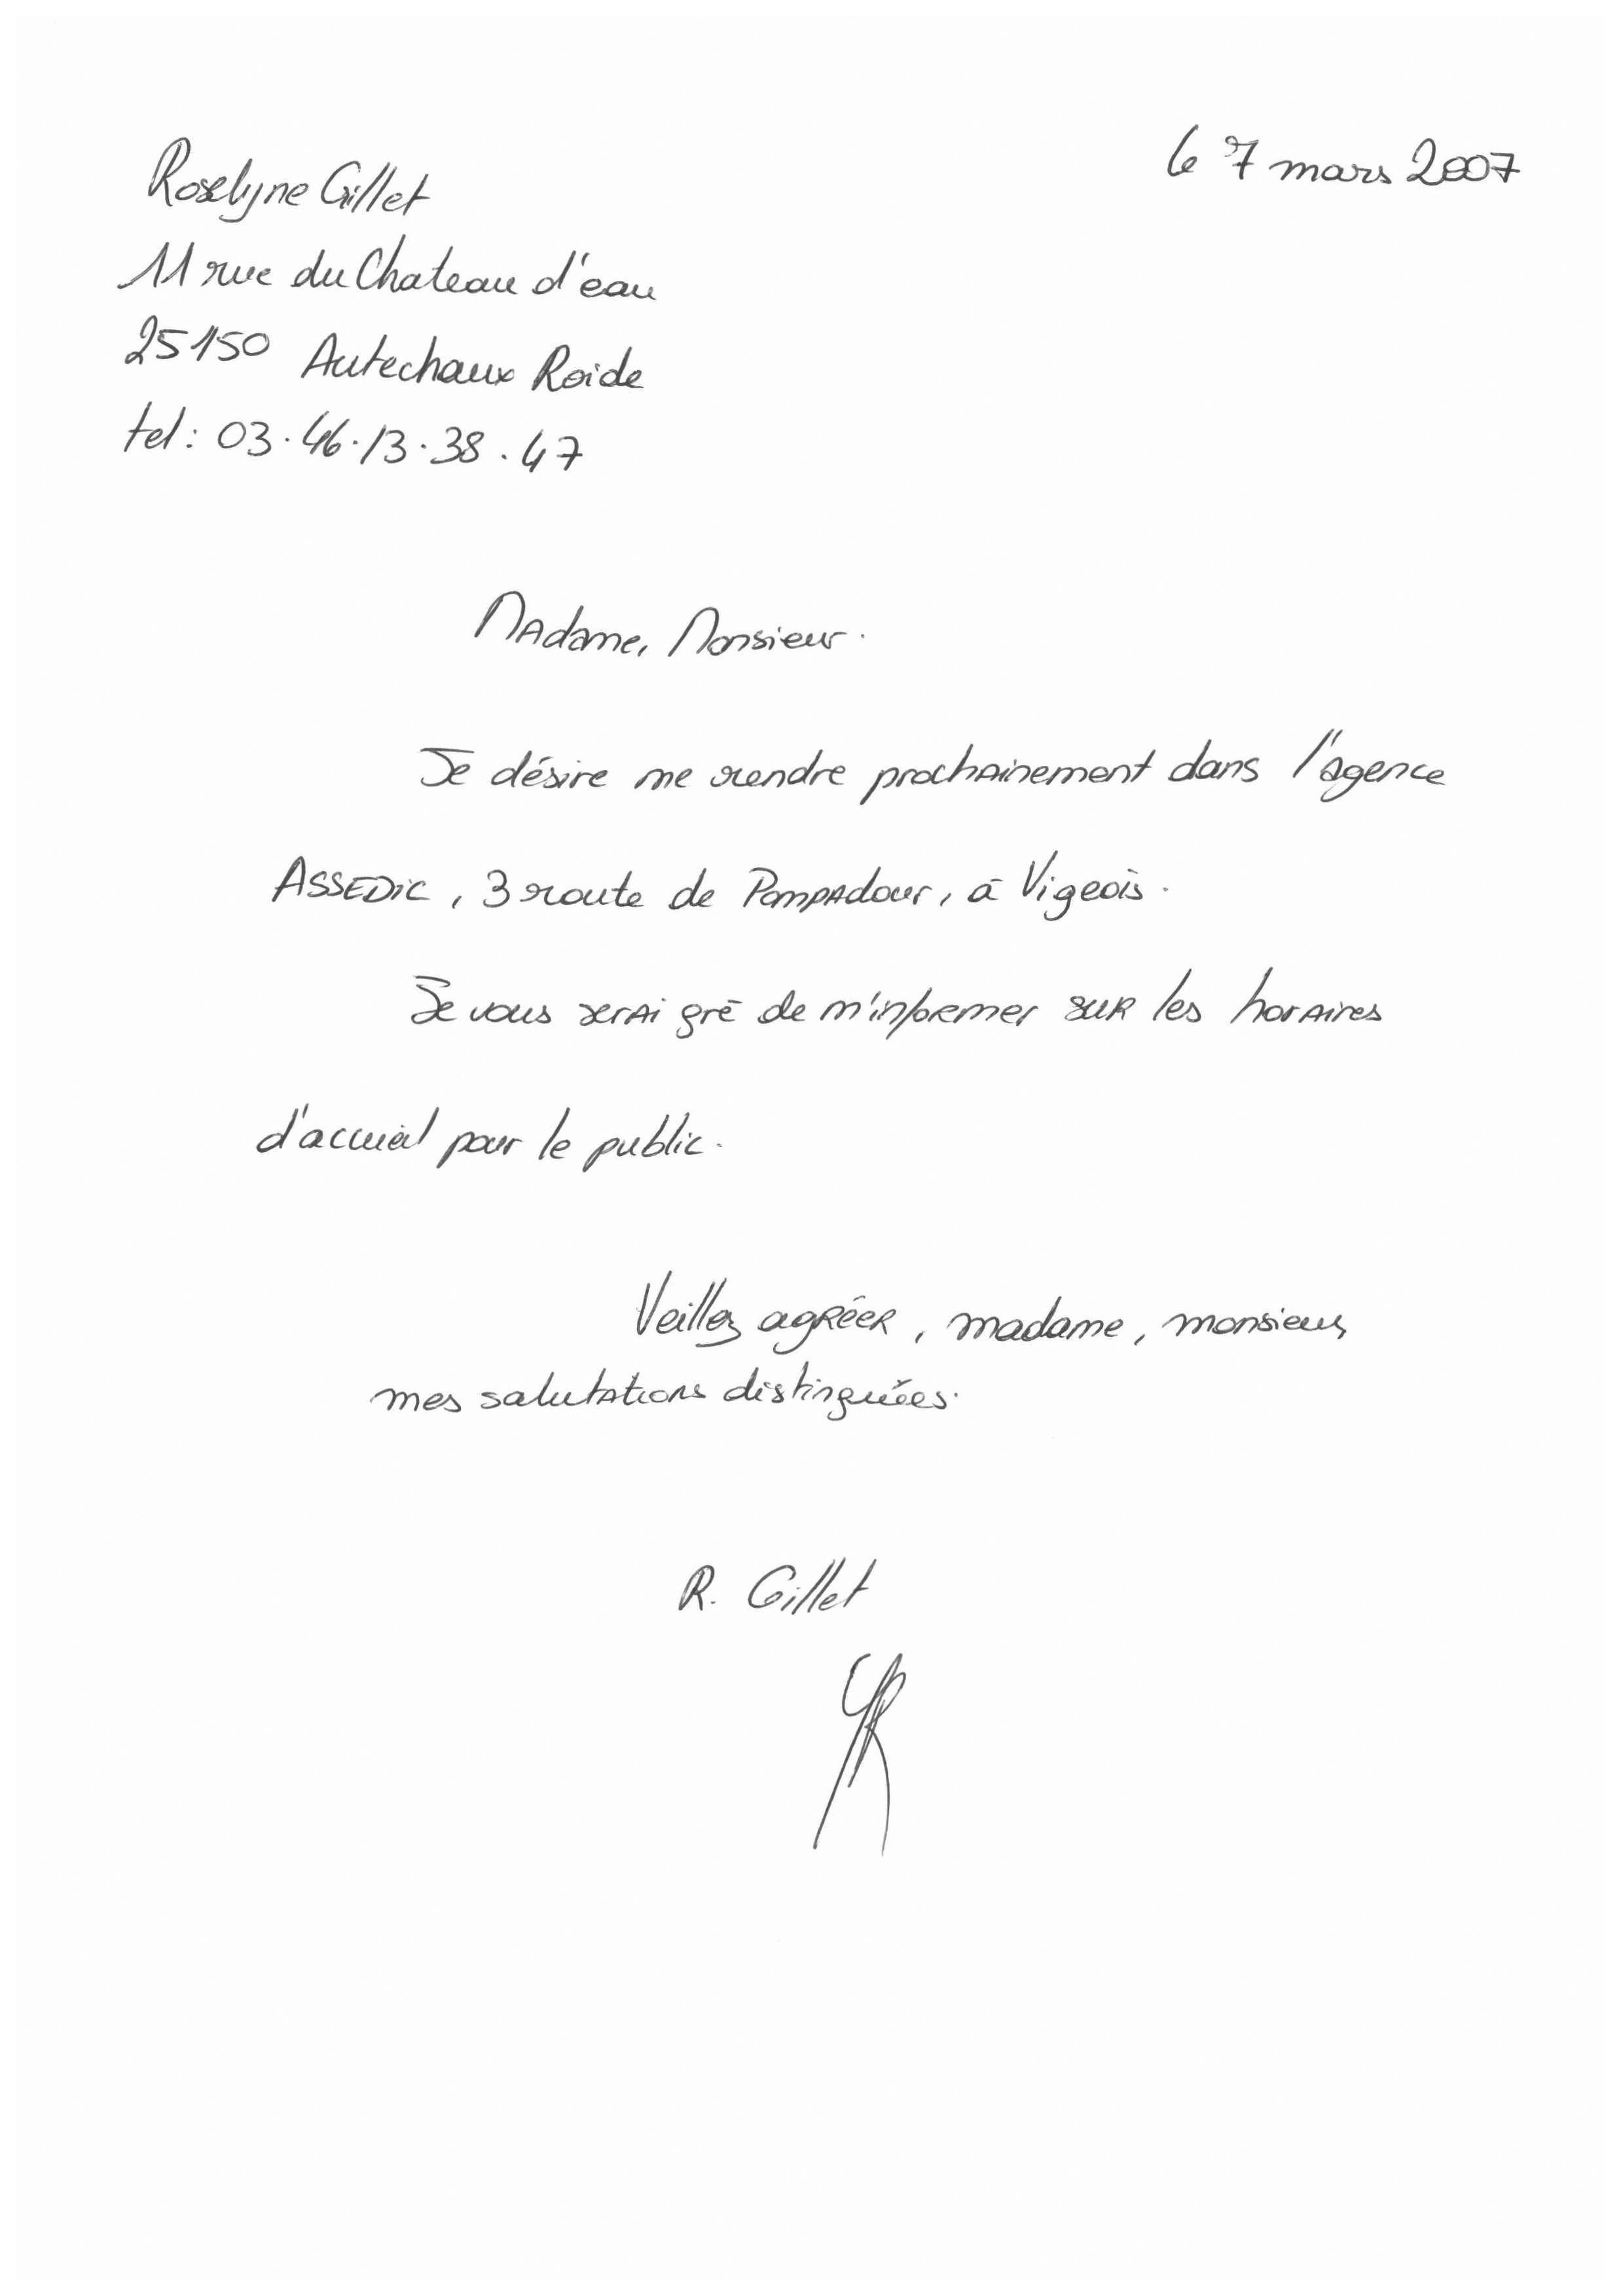 Roselyne Gillet
le 7 mars 2007
11 rue du Chateau d'eau
25150 Autechaux Roide
tel : 03.46.13.38.47
Madame, Monsieur.
Je désire me rendre prochainement dans l'agence
ASSEDIC, 3 route de Pompadour, à Vigeois.
Je vous serai gré de m'informer sur les horaires
d'accueil pour le public.
Veillez agréer, madame, monsieur,
mes salutations distinguées.
R. Gillet